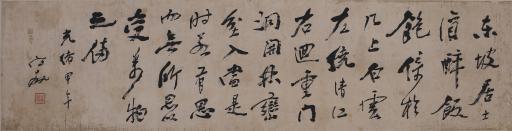 东坡居士
酒醉飯
飽倚於
几上白雲
左繞清江
右洄重門
洞開林巒
坌入當是
时若有思
而無所思以
受萬物
之備
光绪甲午